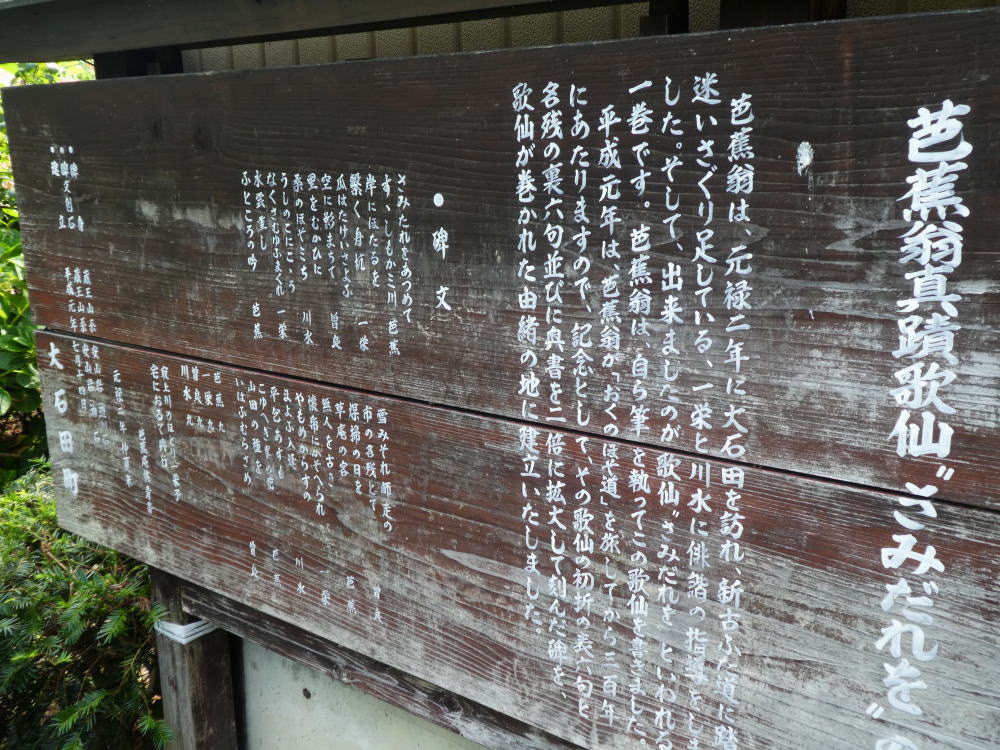 芭蕉翁真蹟歌仙〝さみだれを〟の
芭蕉翁は、元禄二年に大石田を訪れ、新古ふた道に踏
迷いさぐり足している、一栄と川水に俳諧の指導をしま
した。そして、出来ましたのが歌仙〝さみだれを〟といわれる
一巻です。芭蕉翁は、自ら筆を執ってこの歌仙を書きました。
平成元年は、芭蕉翁が「おくのほそ道」を旅してから三百年
にあたりますので、記念として、その歌仙の初折の表六句と
名残の裏六句並びに奥書を二倍に拡大して刻んだ碑を、
歌仙が巻かれた由緒の地に建立いたしました。
●碑文
さみたれをあつめて
すゝしもかミ川 芭蕉
岸にほたるを
繋く舟杭 一栄
瓜はたけいさよふ
空に影まちて 曽良
里をむかひに
桑のほそミち 川水
うしのこにこゝろ
なくさむゆふまくれ 一栄
水雲重し
ふところの吟 芭蕉
雪みそれ師走の
市の名残とて 曽良
煤掃の日を
草庵の客 芭蕉
無人を古き
懐帋にかそへられ 一栄
やもめからすの
まよふ入逢 川水
平包あすも
こゆへき峯の花 芭蕉
山田の種を
いはふむらさめ 曽良
芭蕉 九
一栄 九
曽良 九
川水 九
大石田町